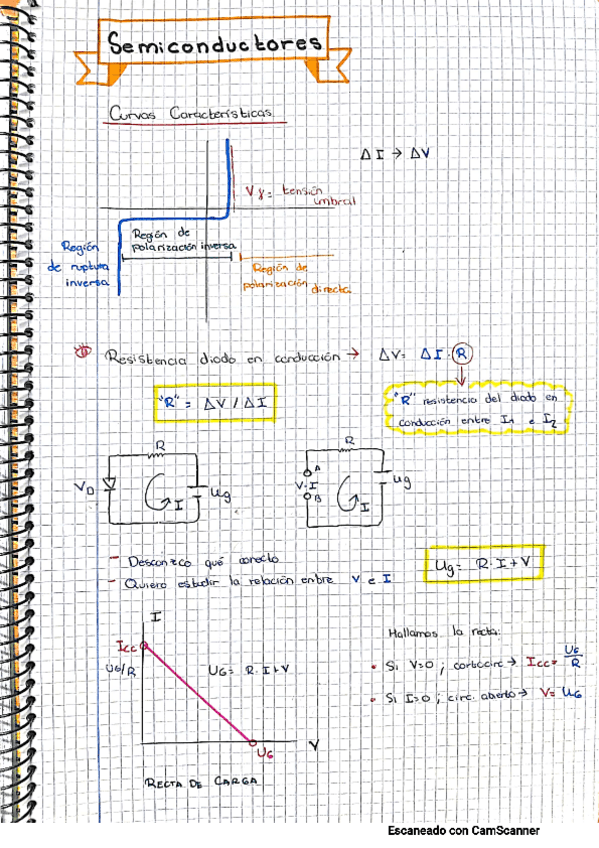 Semiconductores
Curvas Características
ΔI → ΔV
Vγ = tensión
umbral
Región de
polarización inversa
Región
de ruptura
inversa
Región de
polarización directa
Resistencia diodo en conducción → ΔV = ΔI · R
"R" = ΔV / ΔI
"R" resistencia del diodo en
conducción entre I1 e I2
R
VD
I
Ug
R
A
V·I
B
I
Ug
- Desconozco qué conecto
- Quiero estudir la relación entre V e I
Ug = R·I+V
I
Icc
UG/R
UG = R·I+V
UG
V
RECTA DE CARGA
Hallamos la recta:
• Si V=0 ; cortocirc → Icc = UG/R
• Si I=0 ; circ. abierto → V = UG
Escaneado con CamScanner